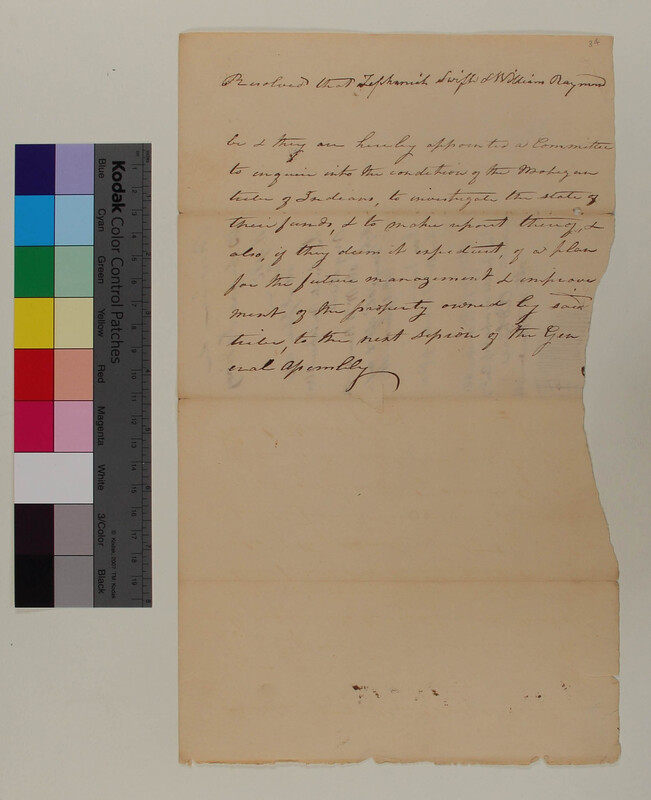 34
Resolved that Zephaniah Swift & William Raymond
be & they are hereby appointed a Committee
to enquire into the condition of the Mohegan
tribe of Indians, to investigate the state of
their funds, & to make report thereof, &
also, if they deem it expedient, of a plan
for the future management & improve
ment of the property owned by said
tribe, to the next session of the Gen
eral Assembly
Kodak Color Control Patches
Blue
Cyan
Green
Yellow
Red
Magenta
White
3/Color
Black
© Kodak, 2007 TM: Kodak